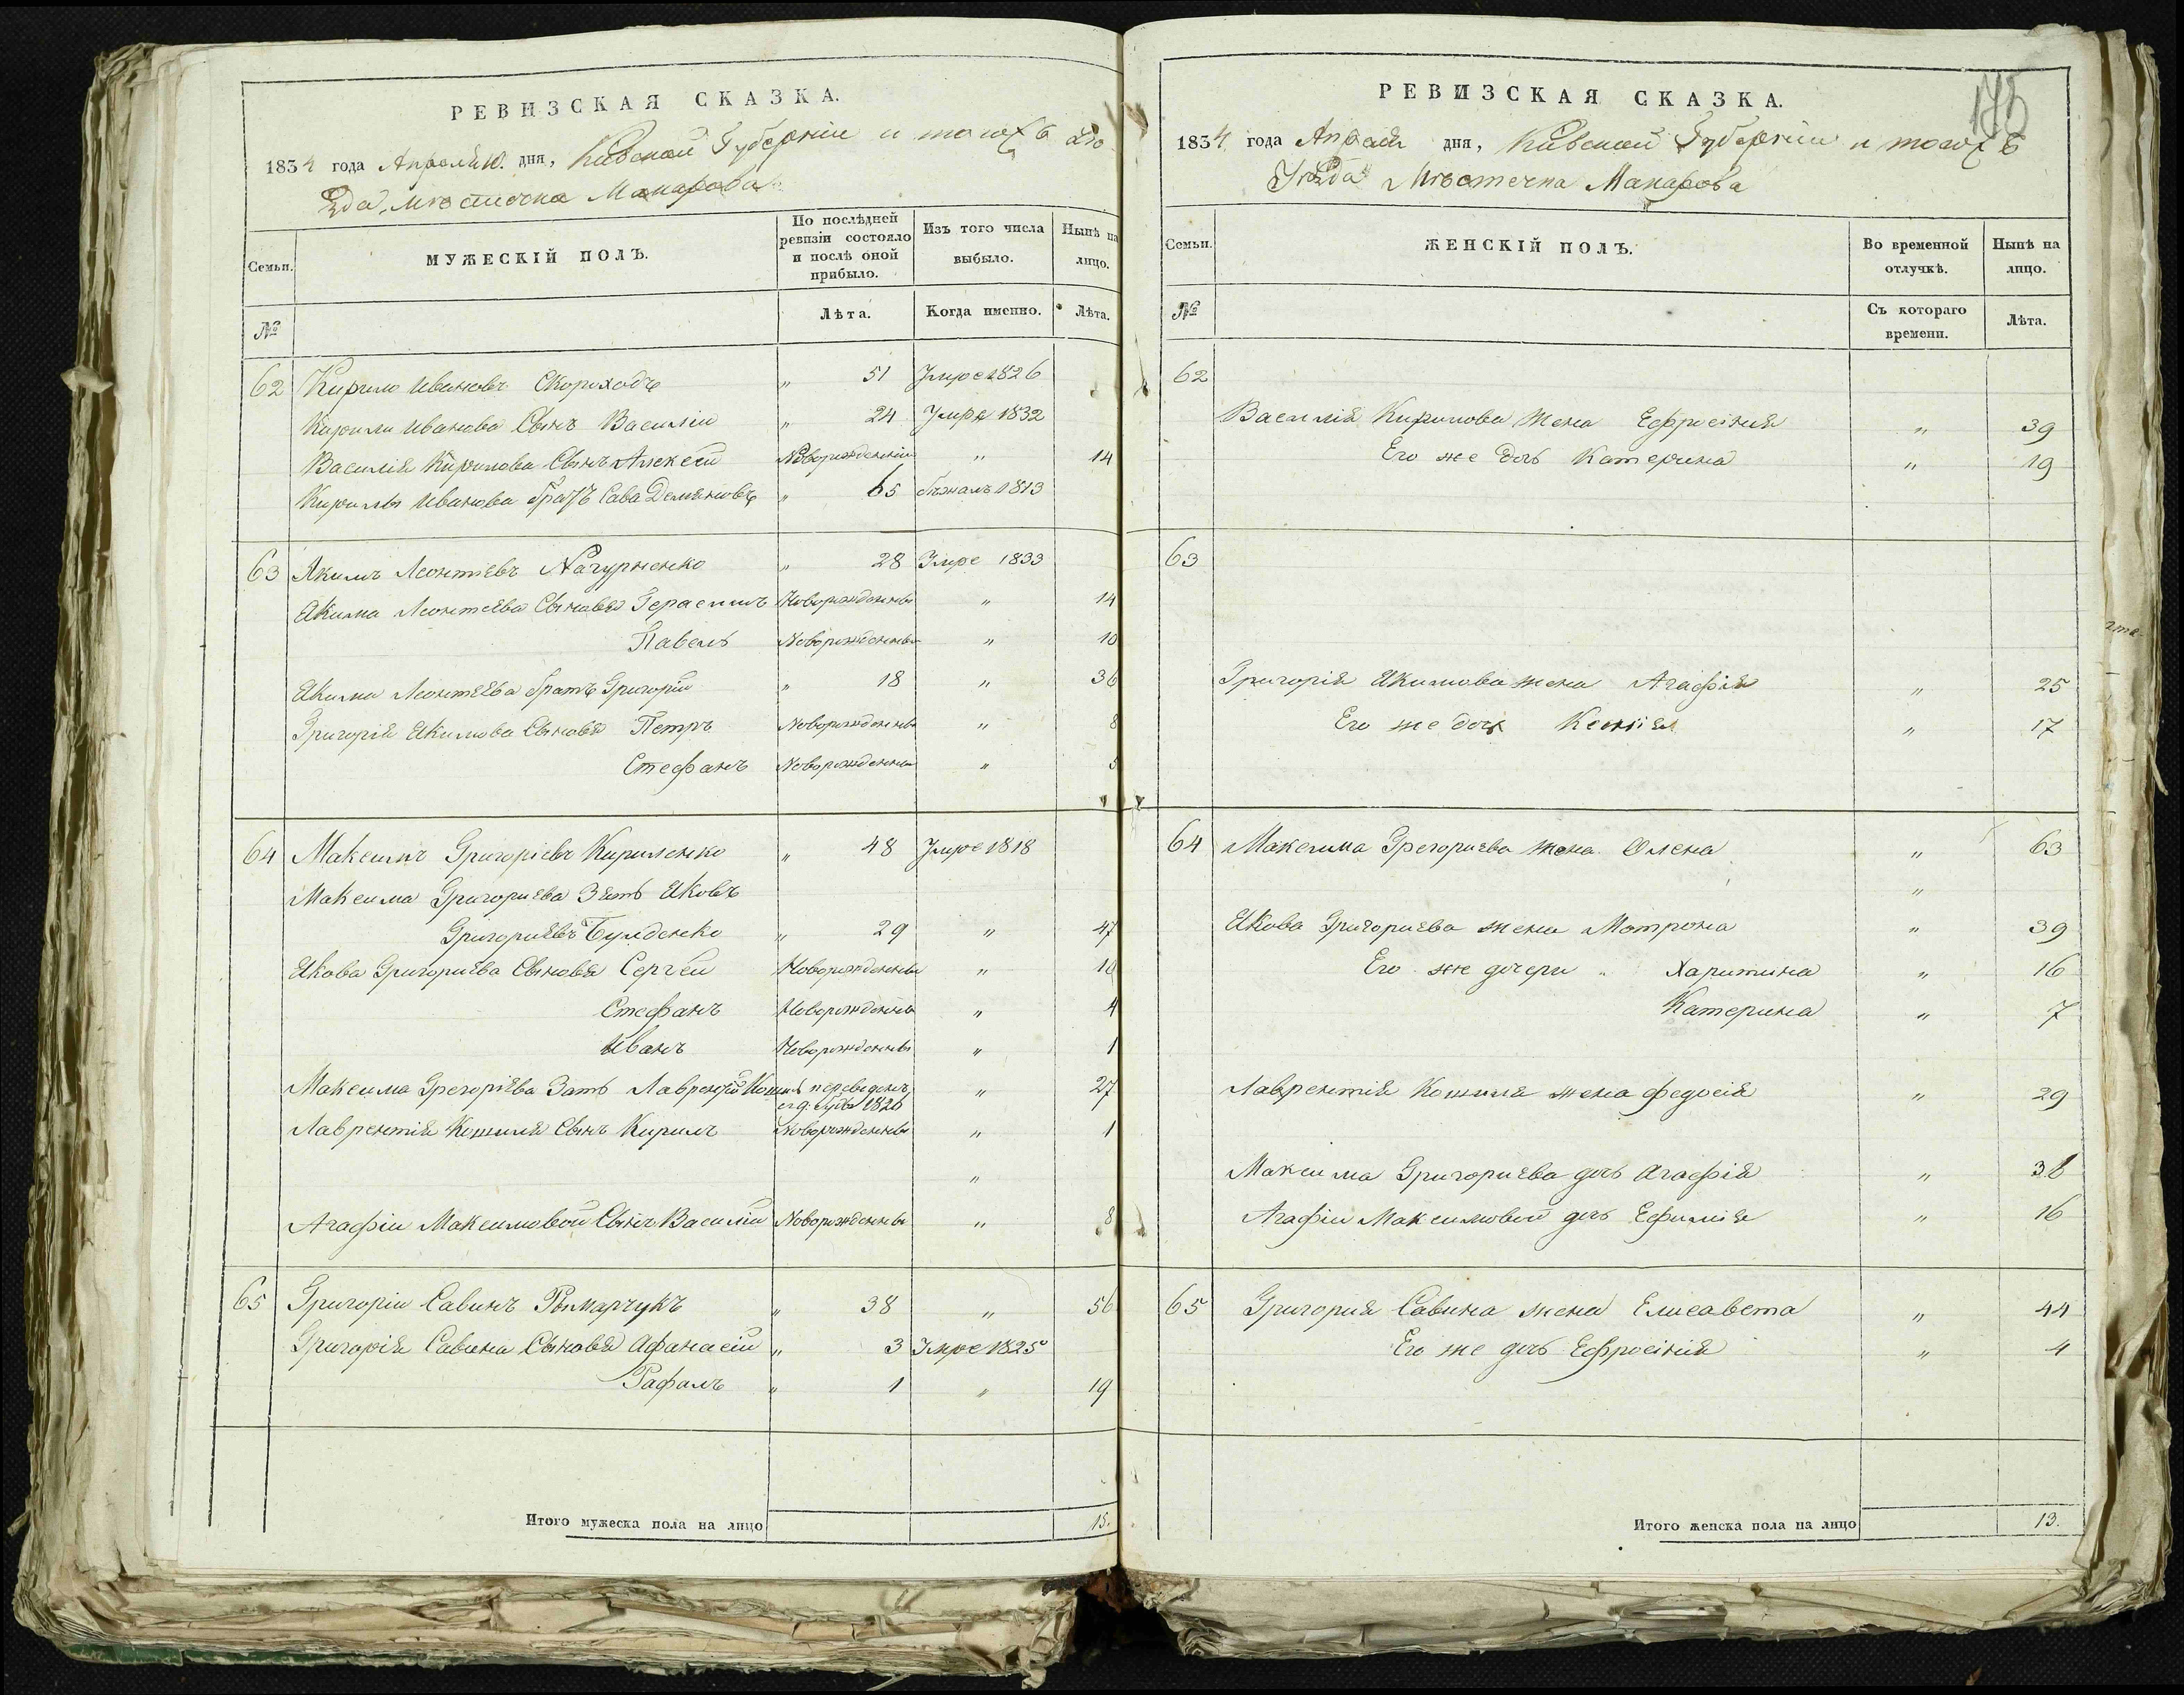 РЕВИЗСКАЯ СКАЗКА.
1834 года Апреля 10. дня, Киевской Губерніи и тогожъ Уѣ
зда, мѣстечка Макарова
Семьи.
МУЖЕСКІЙ ПОЛЪ.
По послѣдней ревизіи состояло и послѣ оной прибыло.
Изъ того числа выбыло.
Нынѣ на лицо.
№
Лѣта.
Когда именно.
Лѣта.
62 Кирило Ивановъ Скороходъ " 51 Умре 1826
Кирили Иванова Сынъ Василіи " 24 Умре 1832
Василія Кирилова Сынъ Алексеи Новорожденніи " 14
Кирилы Иванова братъ Сава Демяновъ " 65 бѣжалъ 1813
63 Якимъ Леонтіевъ " 28 Умре 1833
Якима Леонтіева Сыновья Герасимъ Новорожденны " 14
Павелъ Новорожденны " 10
Якима Леонтіева братъ Григоріи " 18 " 36
Григорія Якимова Сыновья Петръ Новорожденны " 8
Стефанъ Новорожденны " 5
64 Максимъ Григоріевъ Кириленко " 48 Умре 1818
Максима Григориева Зять Яковъ
Григориевъ Булденко " 29 " 47
Якова Григориева Сыновья Сергеи Новорожденны " 10
Стефанъ Новорожденны " 4
Иванъ Новорожденны " 1
Максима Грегоріева Зять Лаврентій переведенъ " 27
1826
Лаврентія Кошиля Сынъ Кирилъ Новорожденны " 1
"
Агафіи Максимовой Сынъ Василіи Новорожденны " 8
65 Григоріи Савинъ Рымарчукъ " 38 " 56
Григорія Савина Сыновья Афанасіи " 3 Умре 1825
Рафалъ " 1 " 19
Итого мужеска пола на лицо 15.
175
РЕВИЗСКАЯ СКАЗКА.
1834 года Апреля дня, Киевской Губерніи и тогожъ
Уѣзда Мѣстечка Макарова
Семьи.
ЖЕНСКІЙ ПОЛЪ.
Во временной отлучкѣ.
Нынѣ на лицо.
№
Съ котораго времени.
Лѣта.
62
Василія Кирилова жена Ефросінія " 39
Его же дочь Катерина " 19
63
Григорія Якимова жена Агафія " 25
Его же дочь Ксенія " 17
64 Максима Грегориева жена Олена " 63
"
Якова Григориева жена Мотрона " 39
Его же дочери Харитина " 16
Катерина " 7
Лаврентія Кошиля жена Федосія " 29
Максима Григориева дочь Агафія " 38
Агафіи Максимовой дочь Ефимія " 16
65 Григория Савина жена Елисавета " 44
Его же дочь Ефросінія " 4
Итого женска пола на лицо 13.